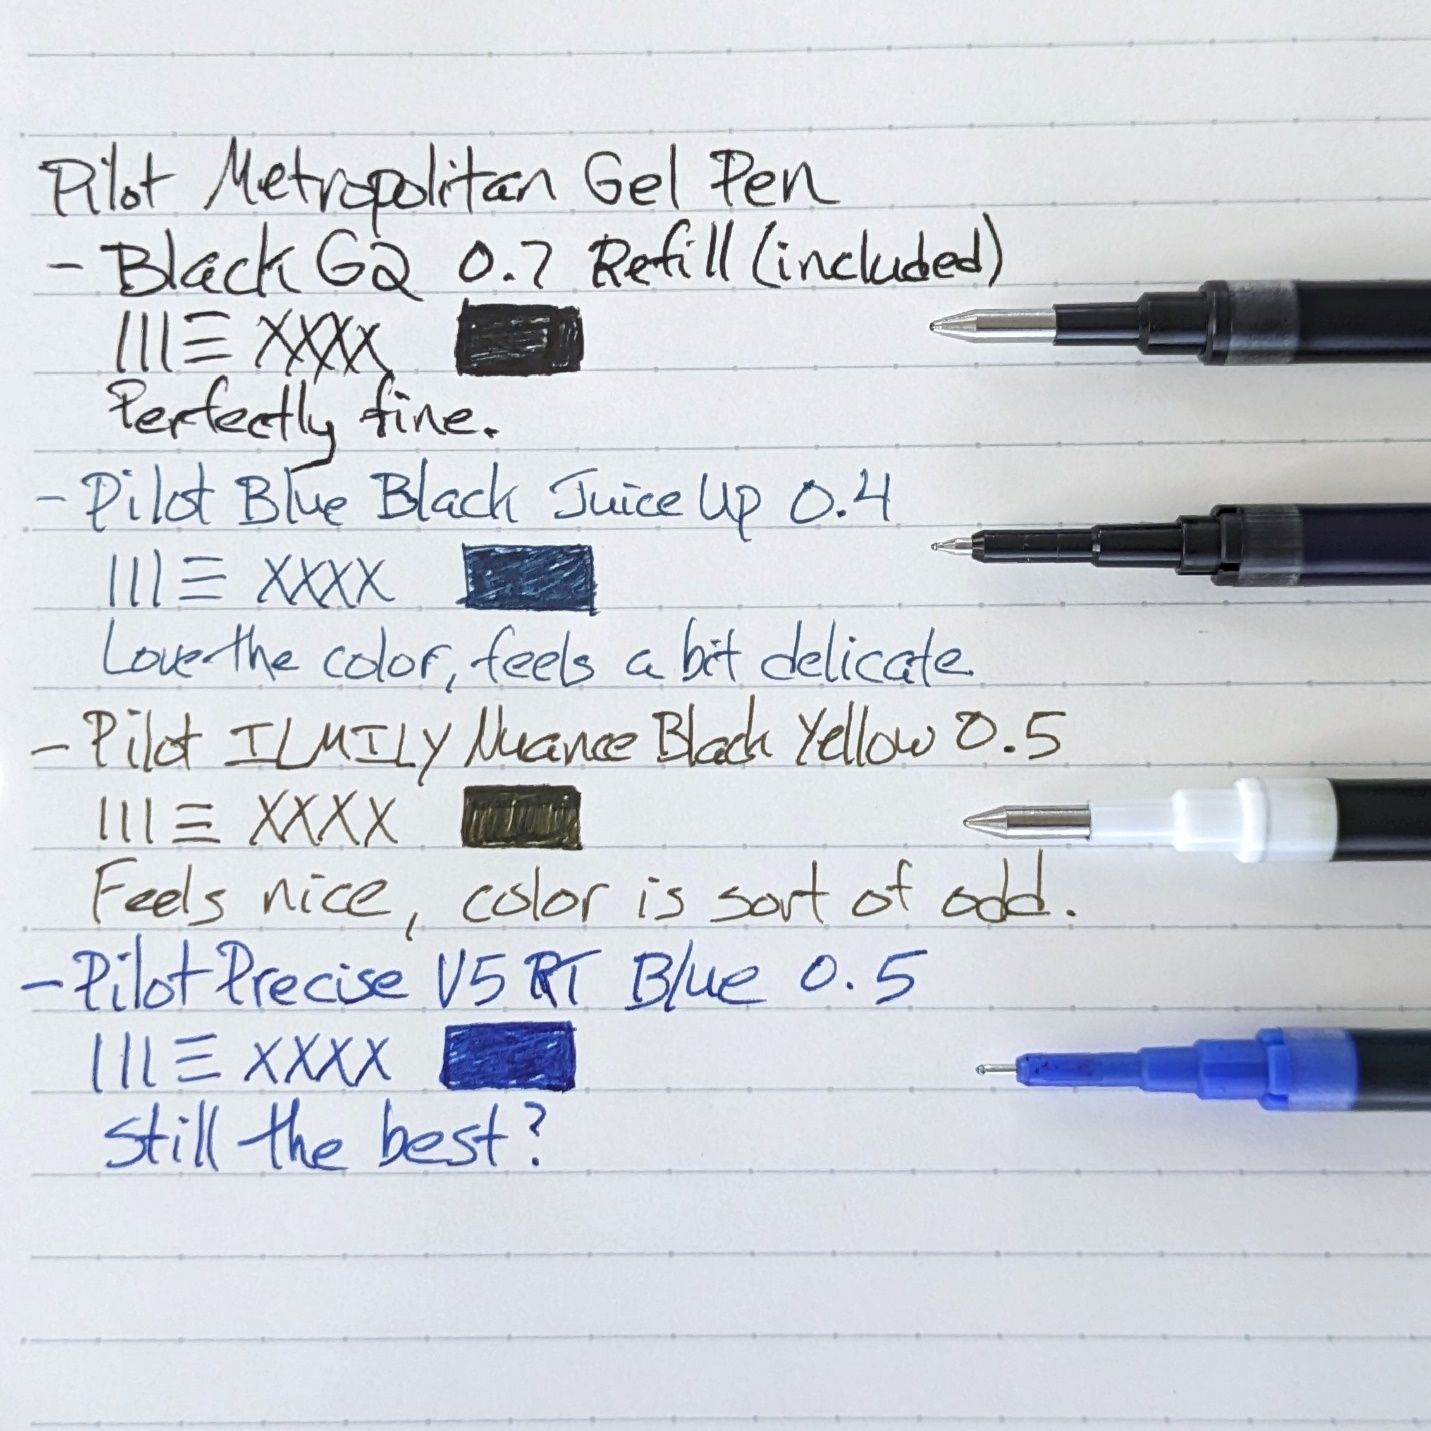 Pilot Metropolitan Gel Pen
- Black G2 0.7 Refill (included)
|||☰ XXXX
Perfectly fine.
- Pilot Blue Black Juice Up 0.4
|||☰ XXXX
Love the color, feels a bit delicate.
- Pilot ILMILY Nuance Black Yellow 0.5
|||☰ XXXX
Feels nice, color is sort of odd.
- Pilot Precise V5 RT Blue 0.5
|||☰ XXXX
Still the best?